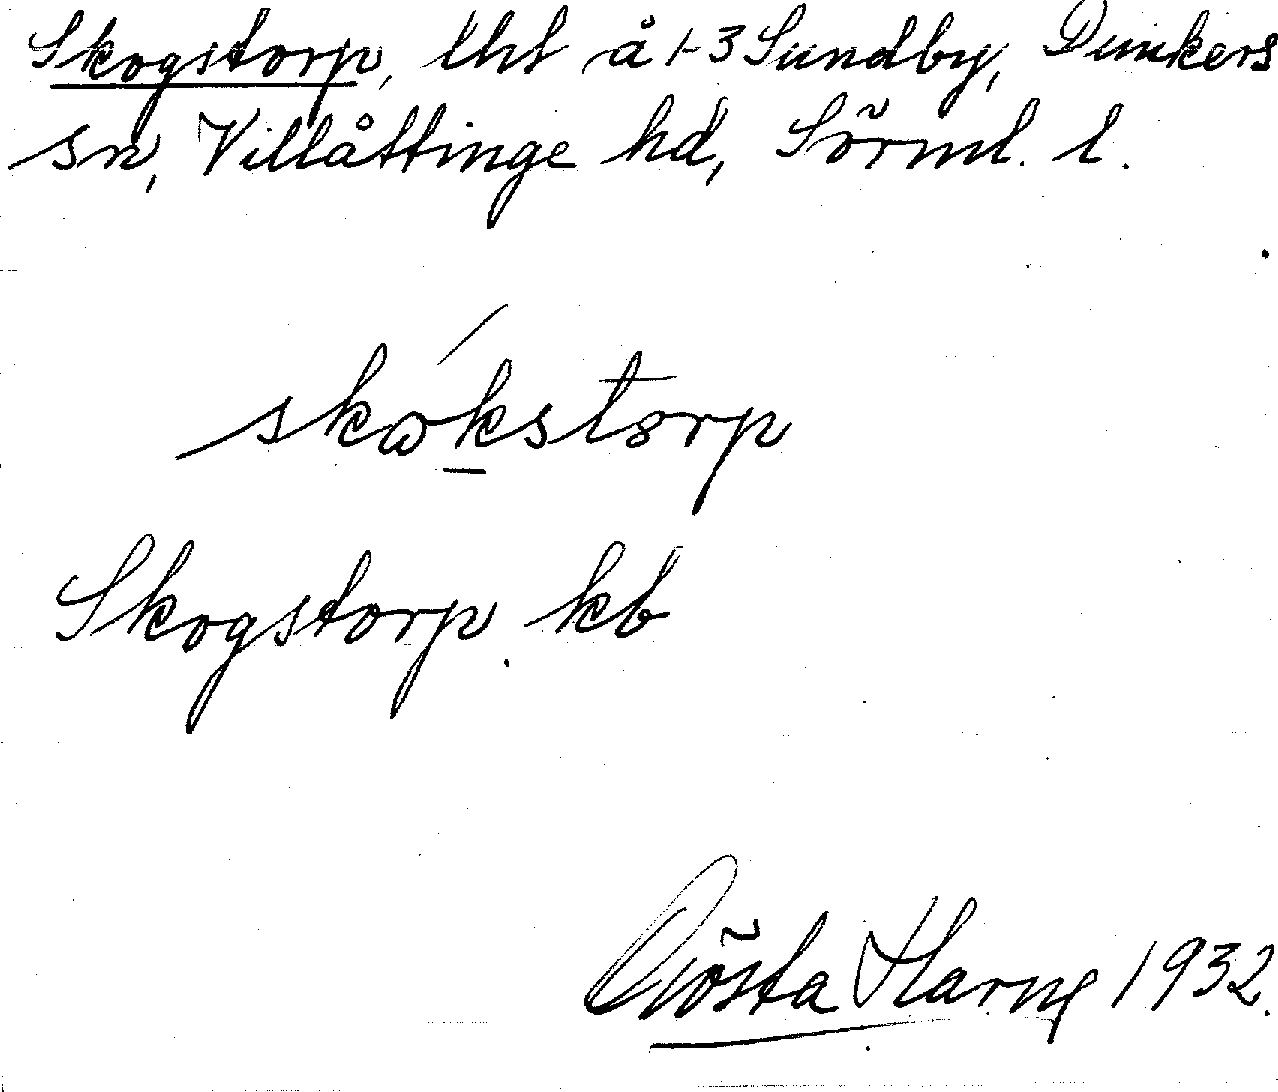 Skogstorp, lht å 1-3 Sundby, Dunkers
sn, Villåttinge hd, Sörml. l.
skωkstorp
Skogstorp kb
Gösta Harne 1932.